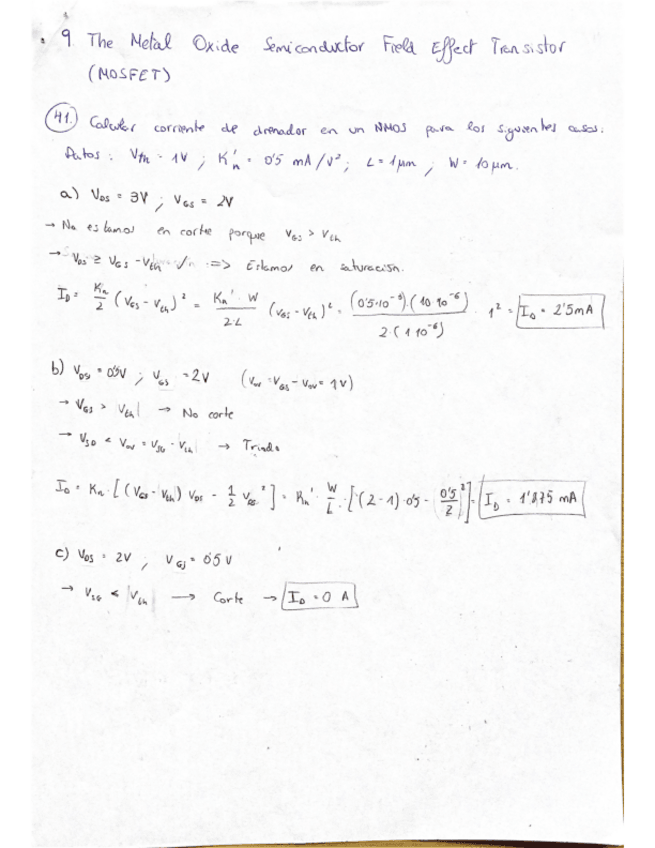 9 The Metal Oxide Semiconductor Field Effect Transistor
(MOSFET)
41. Calcular corriente de drenador en un NMOS para los siguientes casos.
Datos: Vth = 1V ; K'n = 0'5 mA/V² ; L = 1 μm ; W = 10 μm.
a) VDS = 3V ; VGS = 2V
→ No estamos en corte porque VGS > Vth
→ VDS ≥ VGS - Vth => Estamos en saturación.
ID = Kn/2 (VGS - Vth)² = Kn' · W / 2·L (VGS - Vth)² = (0'5·10⁻³)·(10·10⁻⁶) / 2·(1·10⁻⁶) · 1² = ID = 2'5mA
b) VDS = 0'5V ; VGS = 2V (Vov = VGS - Vov = 1V)
→ VGS > |Vth| → No corte
→ VSD < Vov = VSG - |Vth| → Triodo
ID = Kn · [(VGS - Vth) VDS - 1/2 V²] = Kn' · W/L · [(2-1)·0'5 - 0'5²/2] = ID = 1'875 mA
c) VDS = 2V ; VGS = 0'5 V
→ VSG < |Vth| → Corte → ID = 0 A